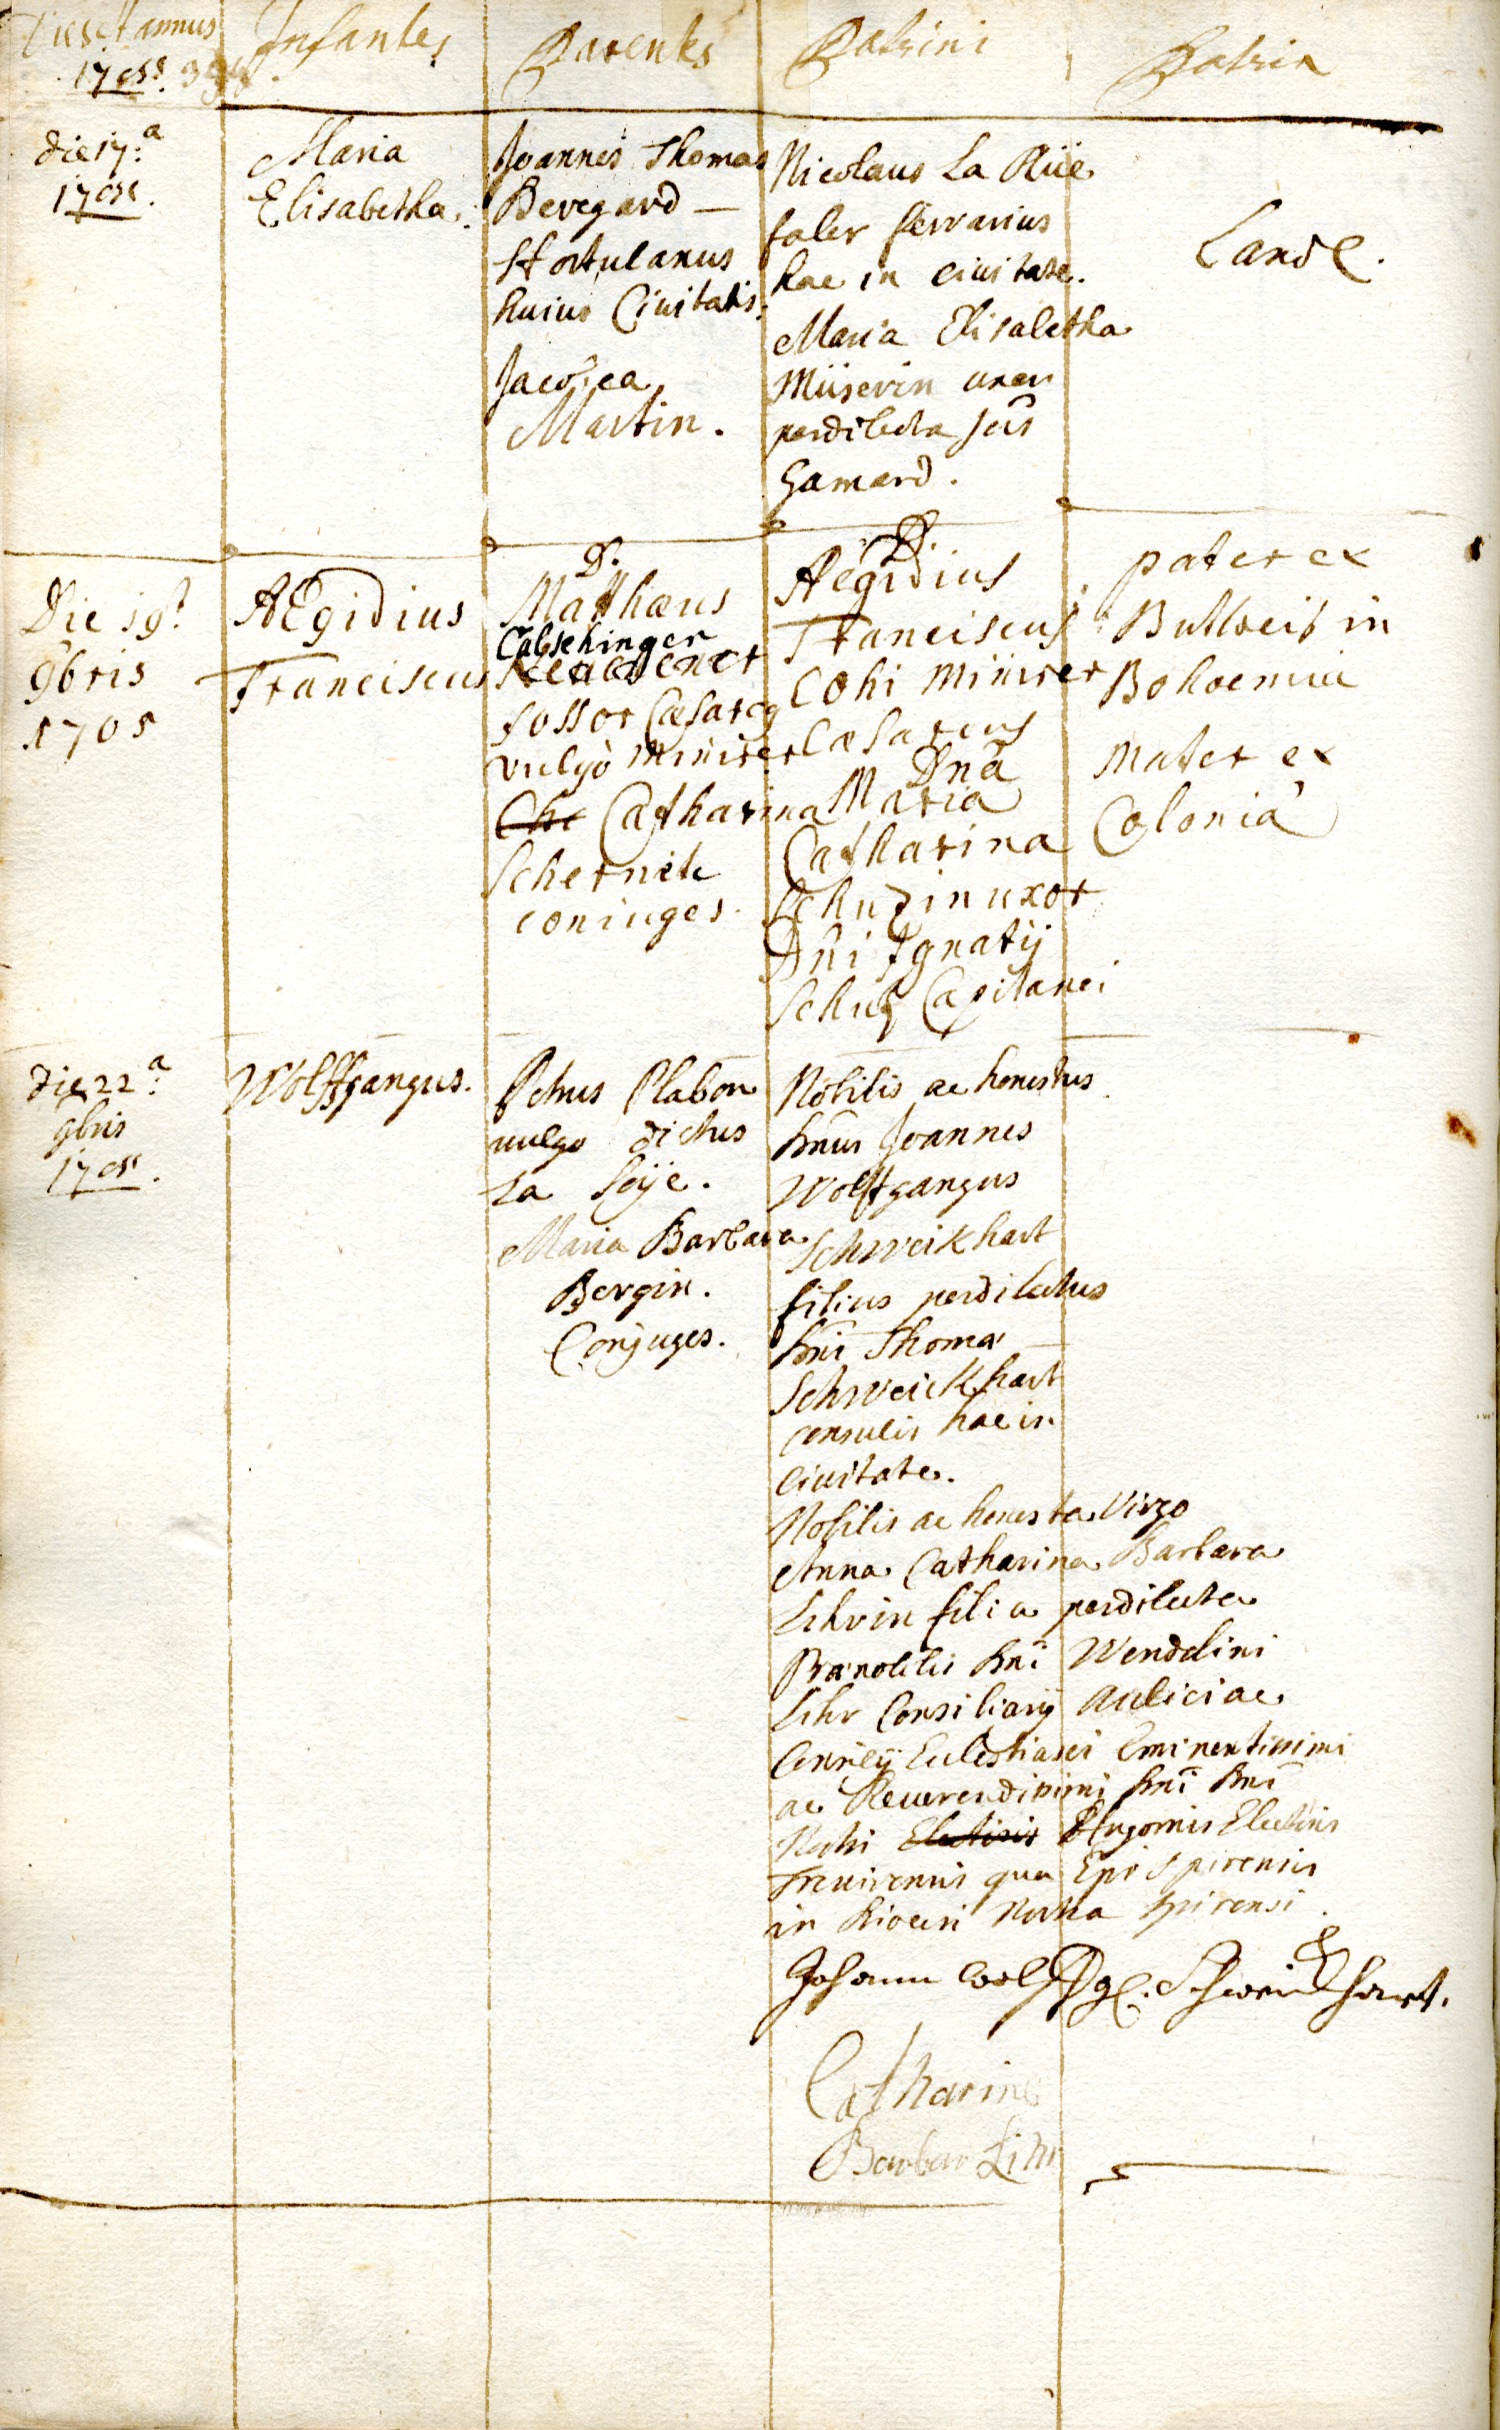 Dies et annus
1705. 9bris
Infantes
Parentes
Patrini
Patria
die 17.a
1705.
Maria
Elisabetha.
Joannes Thomas
Beregard —
Hortulanus
huius Civitatis.
Jacobea
Martin.
Nicolaus La Rüe
faber ferrarius
hac in civitate.
Maria Elisabetha
Müserin uxor
perdilecta Jōis
Gamard.
Landℓ.
Die 19.
9bris
1705
AEgidius
Franciscus
D.
Matthæus
Calschinger
fossor Cæsareg
vulgò Minirer
Che Catharina
Schernik
coniuges.
D.
AEgidius
Franciscus
Cohi Minirer
Cæsareus
Dnā
Maria
Catharina
Schuzin uxor
Dn̄i Ignatij
Schuz Capitanei
pater ex
Buttweis in
Bohoemia
Mater ex
Colonia
die 22.a
9bris
1705.
Wolffgangus.
Petrus Plabon
vulgo dictus
La Soÿe.
Maria Barbara
Bergin.
Conjuges.
Nobilis ac honestus
Dn̄us Joannes
Wolffgangus
Schweikhart
filius perdilectus
Dn̄i Thomæ
Schweickhart
consulis hac in
civitate.
Nobilis ac honesta Virgo
Anna Catharina Barbara
Lihrin filia perdilecta
Prænobilis Dn̄i Wendelini
Lihr Consiliarij Aulici ac
Eminentissimi
ac Reverendissimi Dn̄i Dn̄i
Nostri Electoris Hugonis Electoris
Trevirensis qua Epi Spirensis
in Spirensi.
Johann Wolffgl. Schweickhart.
Catharina
Barbar Lihr